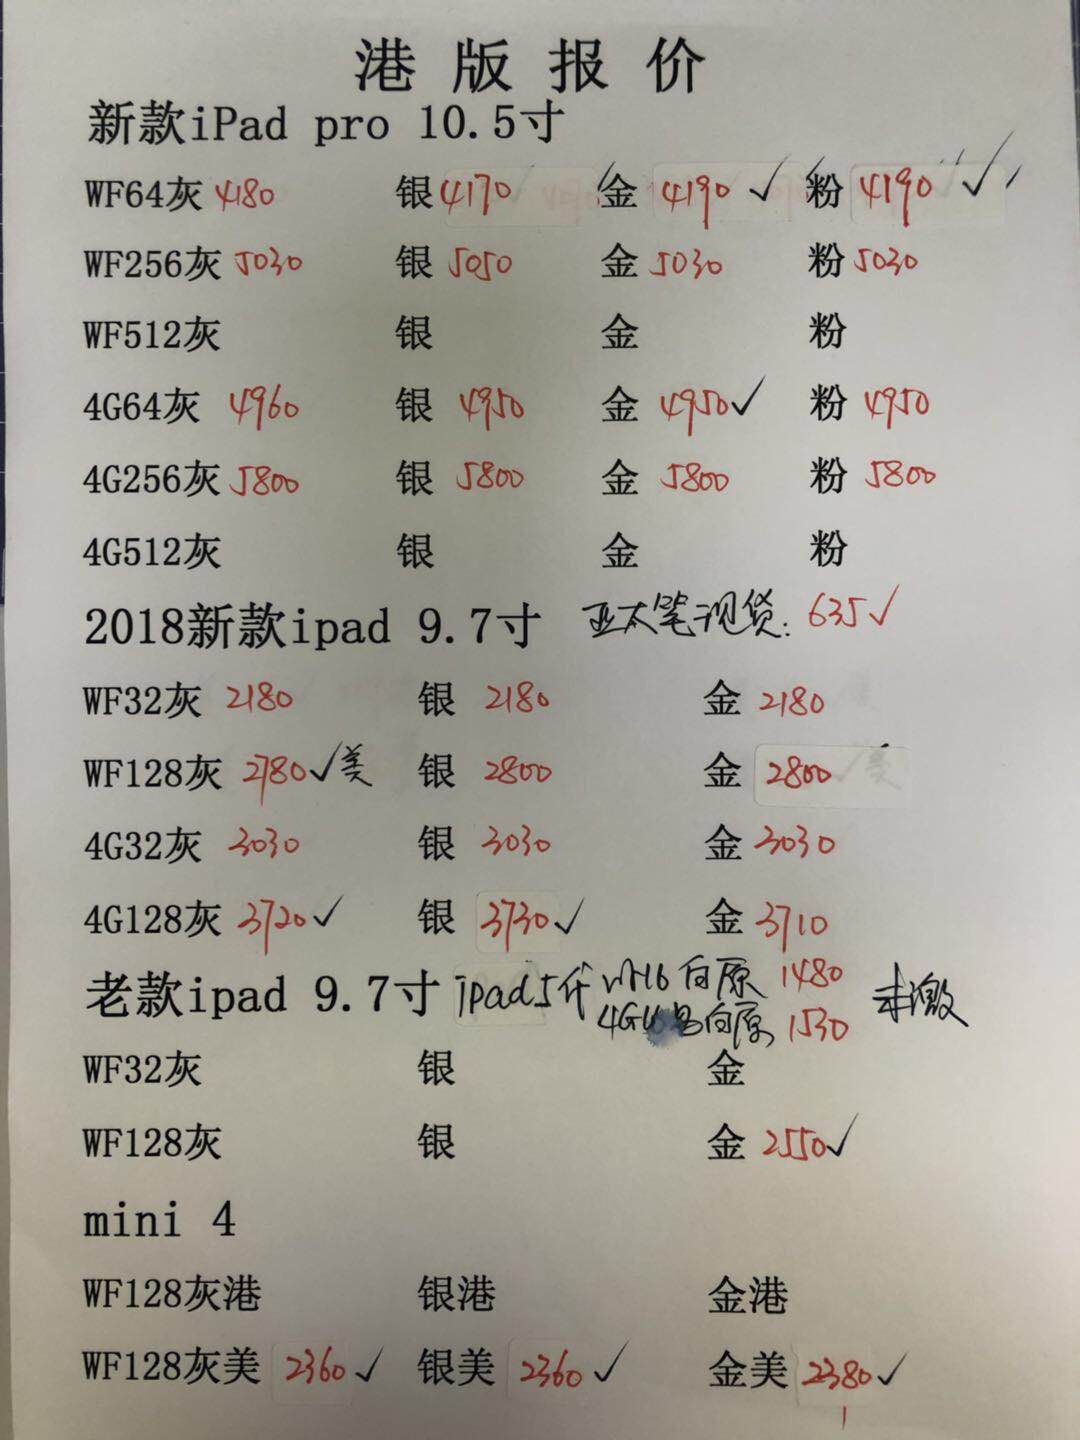 港版报价
新款iPad pro 10.5寸
WF64灰 4180 银 4170 金 4190 ✓ 粉 4190 ✓
WF256灰 5030 银 5050 金 5030 粉 5030
WF512灰 银 金 粉
4G64灰 4960 银 4950 金 4950 ✓ 粉 4950
4G256灰 5800 银 5800 金 5800 粉 5800
4G512灰 银 金 粉
2018新款ipad 9.7寸 亚太笔现货: 635 ✓
WF32灰 2180 银 2180 金 2180
WF128灰 2780 ✓ 美 银 2800 金 2800
4G32灰 3030 银 3030 金 3030
4G128灰 3720 ✓ 银 3730 ✓ 金 3710
老款ipad 9.7寸 ipad5代 16白原 1480 未激
4G 白原 1530
WF32灰 银 金
WF128灰 银 金 2550 ✓
mini 4
WF128灰港 银港 金港
WF128灰美 2360 ✓ 银美 2360 ✓ 金美 2380 ✓